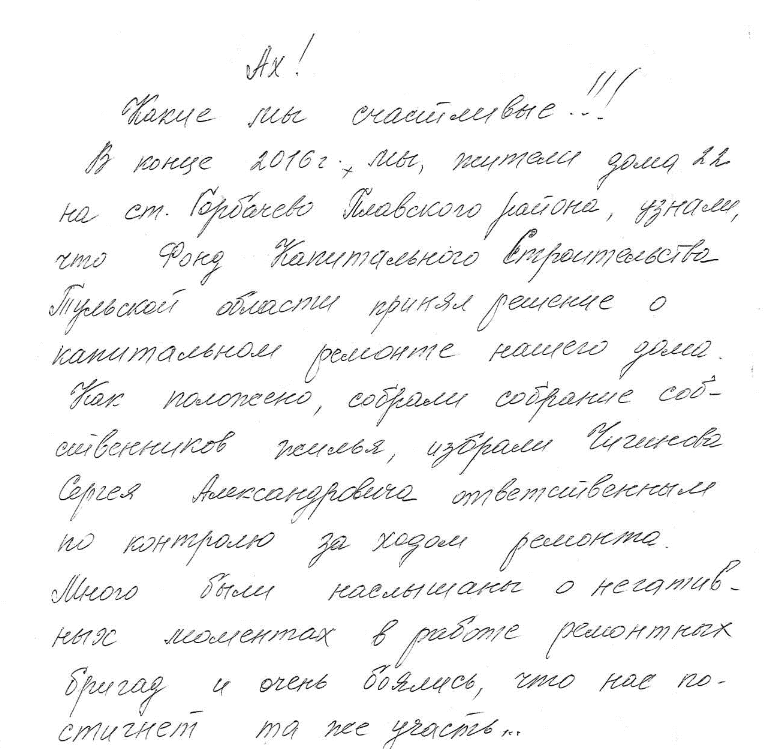 Ах!
Какие мы счастливые!!!
В конце 2016г., мы, жители дома 22
на ст. Горбачево Плавского района, узнали,
что Фонд Капитального Строительства
Тульской области принял решение о
капитальном ремонте нашего дома.
Как положено, собрали собрание соб-
ственников жилья, избрали Чигинова
Сергея Александровича ответственным
по контролю за ходом ремонта.
Много были наслышаны о негатив-
ных моментах в работе ремонтных
бригад и очень боялись, что нас по-
стигнет та же участь...